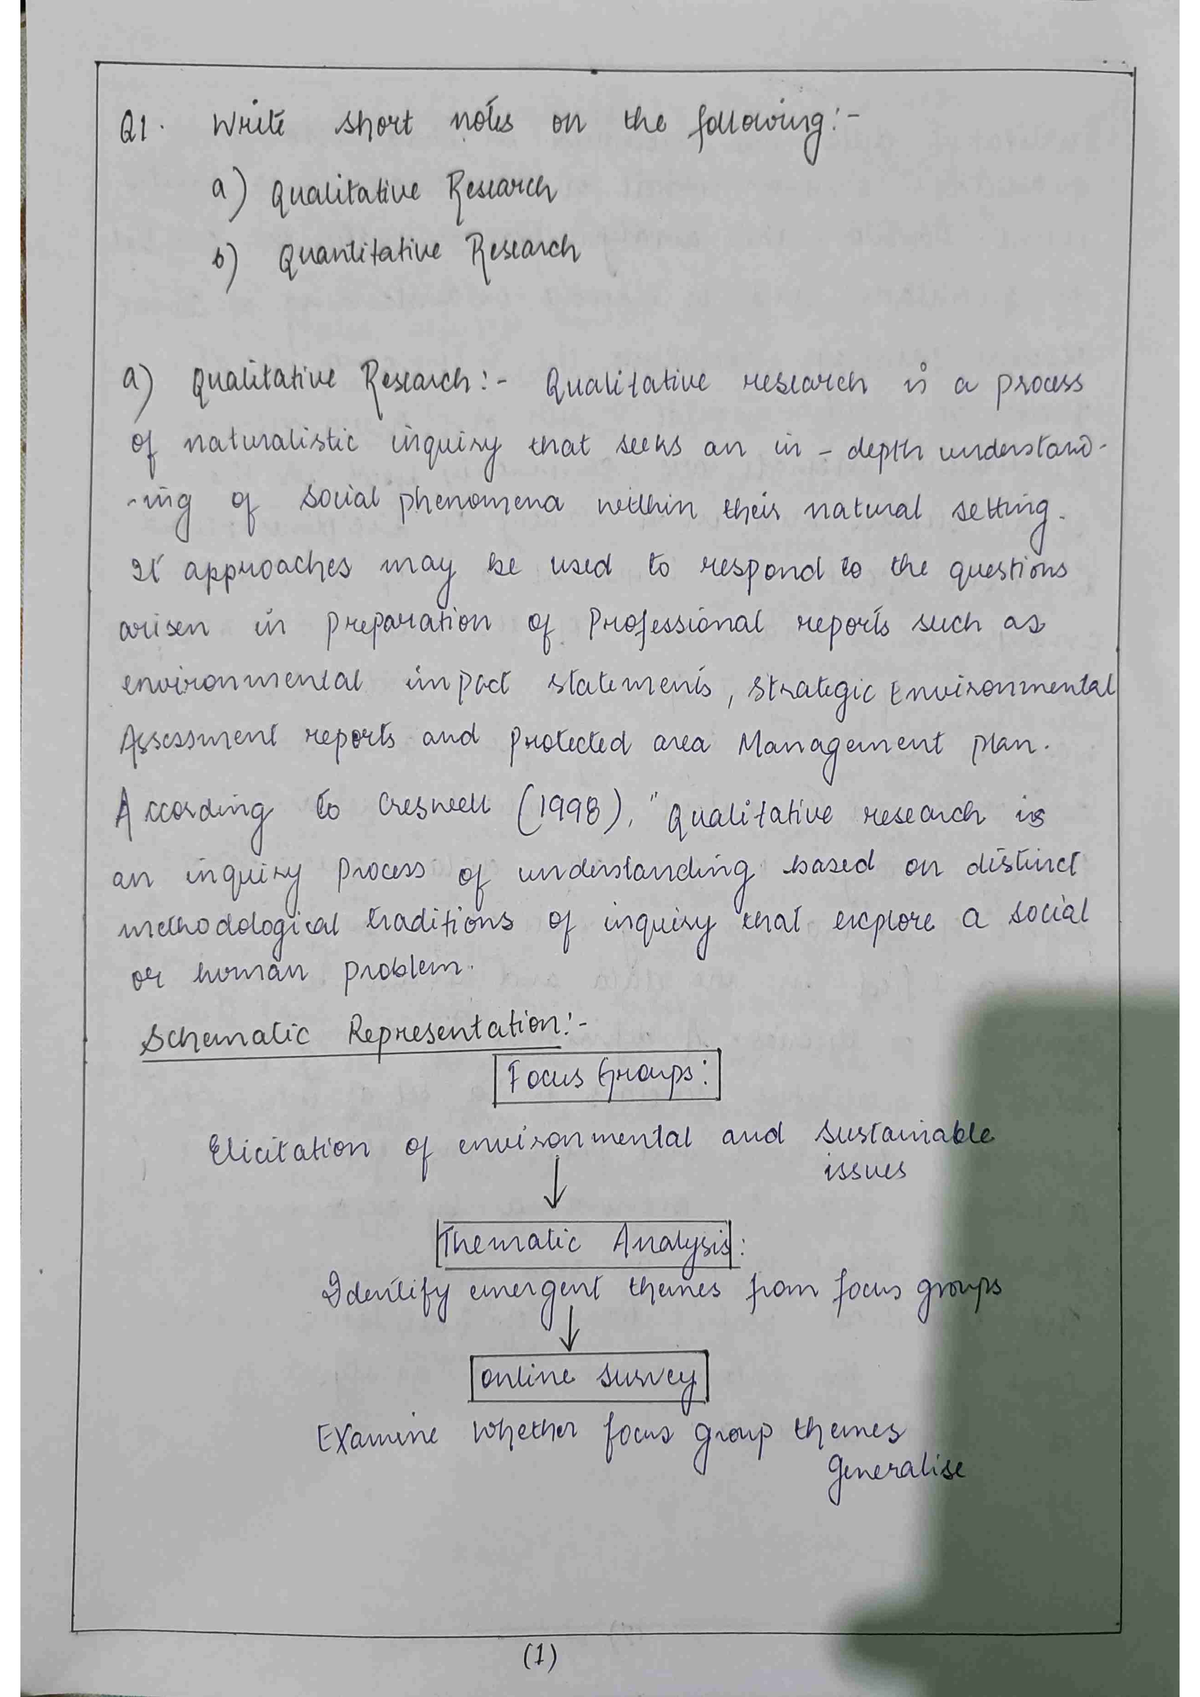 Q1. Write short notes on the following:-
a) Qualitative Research
b) Quantitative Research
a) Qualitative Research:- Qualitative research is a process
of naturalistic inquiry that seeks an in-depth understand-
-ing of social phenomena within their natural setting.
It approaches may be used to respond to the questions
arisen in preparation of Professional reports such as
environmental impact statements, Strategic Environmental
Assessment reports and protected area Management plan.
According to Creswell (1998), "Qualitative research is
an inquiry process of understanding based on distinct
methodological traditions of inquiry that explore a social
or human problem.
Schematic Representation:-
Focus Groups:
Elicitation of environmental and sustainable
issues
Thematic Analysis:
Identify emergent themes from focus groups
online survey
Examine whether focus group themes
generalise
(1)